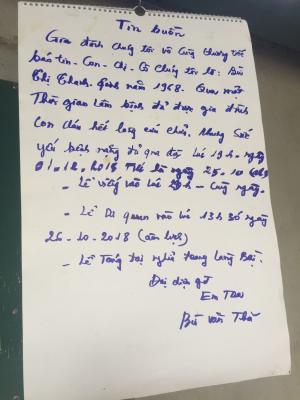 Tin buồn
Gia đình chúng tôi vô cùng thương tiếc
báo tin - Con - Chị - Cô chúng tôi là: Bùi
Thị Thanh. Sinh năm 1968. Qua một
Thời gian lâm bệnh đã được gia đình
Con cháu hết lòng cứu chữa. Nhưng Sức
yếu bệnh nặng đã qua đời lúc 19h - ngày
01.12.2018 Tức là ngày 25-10
- Lễ viếng vào lúc 20h - Cùng ngày.
- Lễ Di quan vào lúc 13h 30 ngày
26-10-2018 (âm lịch)
- Lễ Táng tại nghĩa trang làng
Đại diện gđ
Em
Bùi văn